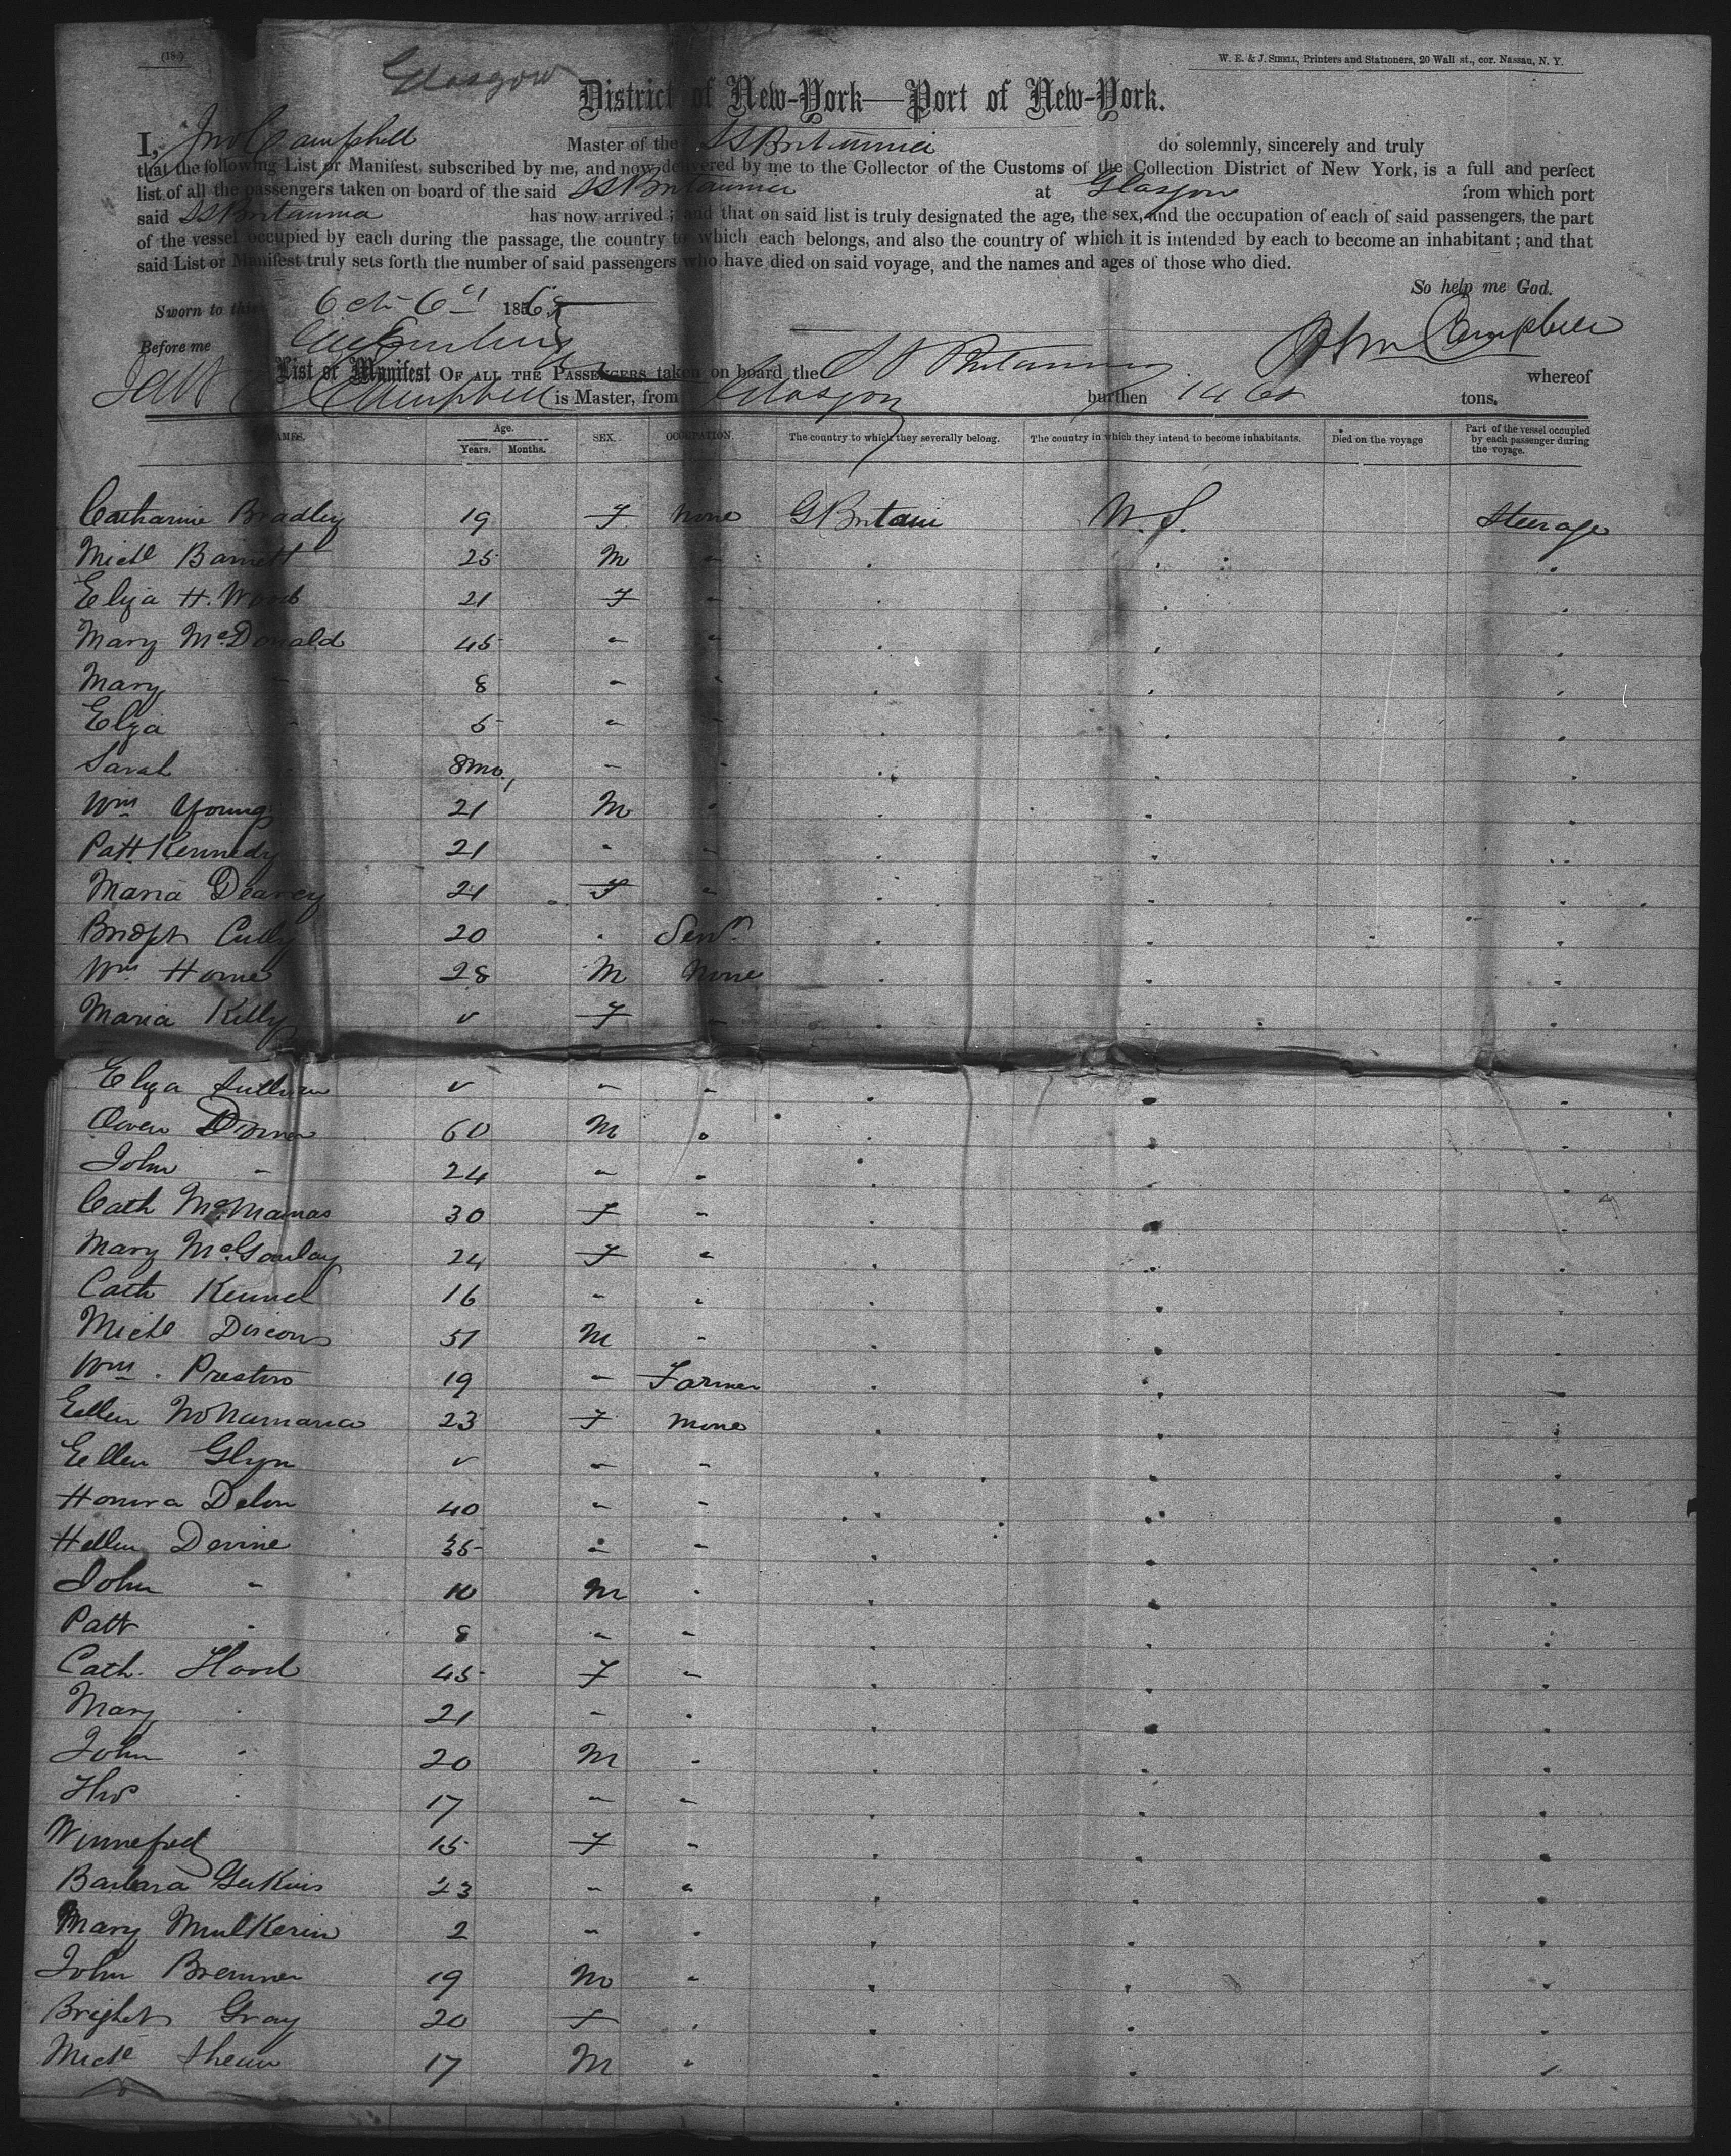 (18)
W. E. & J. SIBELL, Printers and Stationers, 20 Wall st., cor. Nassau, N. Y.
Glasgow
District of New-York—Port of New-York.
I, Jno Campbell Master of the SS Britannia do solemnly, sincerely and truly
that the following List or Manifest, subscribed by me, and now delivered by me to the Collector of the Customs of the Collection District of New York, is a full and perfect
list of all the passengers taken on board of the said SS Britannia at Glasgow from which port
said SS Britannia has now arrived; and that on said list is truly designated the age, the sex, and the occupation of each of said passengers, the part
of the vessel occupied by each during the passage, the country to which each belongs, and also the country of which it is intended by each to become an inhabitant; and that
said List or Manifest truly sets forth the number of said passengers who have died on said voyage, and the names and ages of those who died.
So help me God.
Sworn to this Oct 6 186
Before me
John Campbell
List or Manifest OF ALL THE PASSENGERS taken on board the SS Britannia whereof
Campbell is Master, from Glasgow burthen tons.
NAMES. Age. Years. Months. SEX. OCCUPATION. The country to which they severally belong. The country in which they intend to become inhabitants. Died on the voyage Part of the vessel occupied by each passenger during the voyage.
Catharine Bradley 19 F None G Britain U.S. Steerage
Michl Barnett 25 M "
Eliza H. Wood 21 F "
Mary McDonald 45 " "
Mary " 8 " "
Eliza " 5 " "
Sarah " 8mo. " "
Wm Young 21 M "
Patt Kennedy 21 " "
Maria Dearey 21 F "
Bridget Cully 20 " Servt
Wm Horne 28 M None
Maria Kelly " F "
Eliza Sullivan " " "
Owen 60 M "
John " 24 " "
Cath McManas 30 F "
Mary McGaulay 24 F "
Cath Kennel 16 " "
Michl 51 M "
Wm. Preston 19 " Farmer
Ellen McNamara 23 F None
Ellen Glyn " " "
Honora 40 " "
Hellen Devine 35 " "
John " 10 M "
Patt " 8 " "
Cath. Hood 45 F "
Mary " 21 " "
John " 20 M "
Thos " 17 " "
Winnefred 15 F "
Barbara 23 " "
Mary MulKerin 2 " "
John Bremner 19 M "
Bright Gray 20 F "
Michl Shean 17 M "